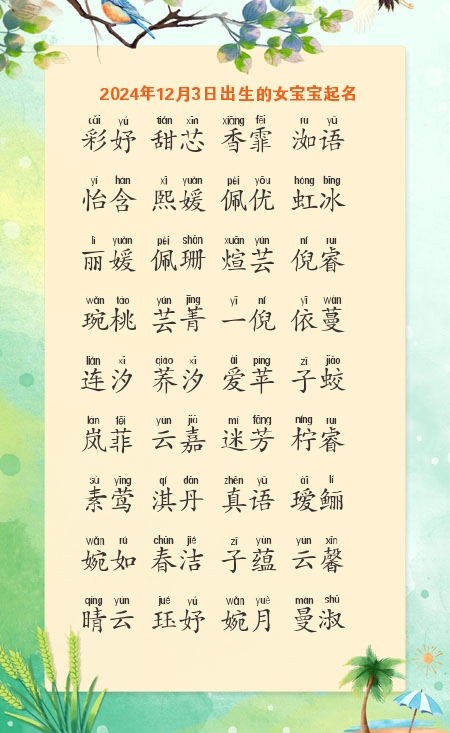 2024年12月3日出生的女宝宝起名
cǎi yú tián xīn xiāng fēi rù yǔ
彩妤 甜芯 香霏 洳语
yí hán xī yuán pèi yōu hóng bīng
怡含 熙媛 佩优 虹冰
lì yuán pèi shān xuān yún ní ruì
丽媛 佩珊 煊芸 倪睿
wǎn táo yún jīng yī ní yī wàn
琬桃 芸菁 一倪 依蔓
lián xī qiáo xī ài píng zǐ jiāo
连汐 荞汐 爱苹 子蛟
lán fēi yún jiā mí fāng níng ruì
岚菲 云嘉 迷芳 柠睿
sù yīng qí dān zhēn yǔ ài lí
素莺 淇丹 真语 瑷鲡
wǎn rú chūn jié zǐ yùn yún xīn
婉如 春洁 子蕴 云馨
qíng yún jué yú wǎn yuè màn shū
晴云 珏妤 婉月 曼淑